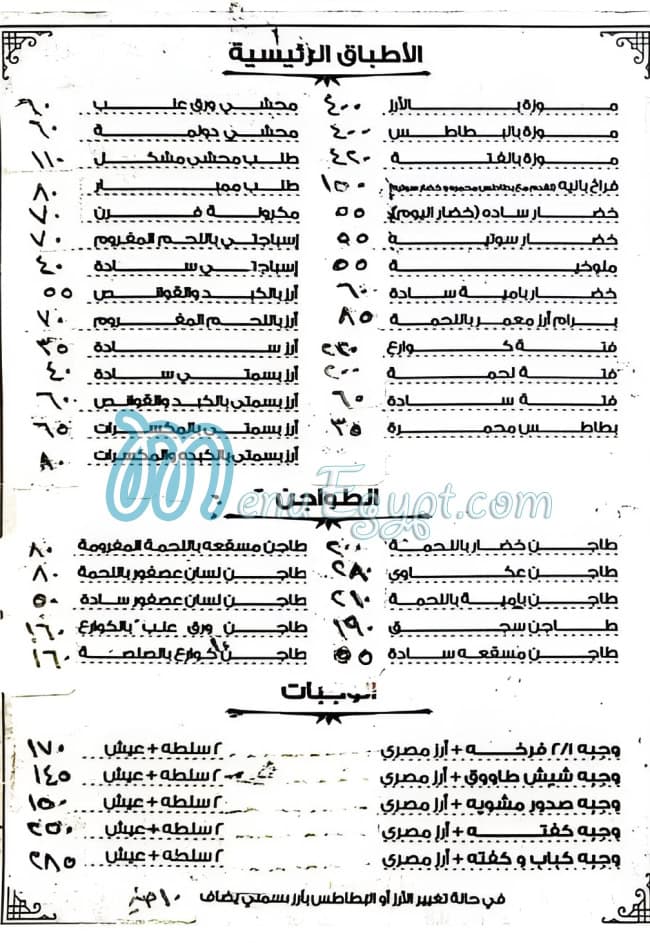 الأطباق الرئيسية
موزة بالأرز ٤٠٠
موزة بالبطاطس ٤٠٠
موزة بالفتة ٤٢٠
فراخ بانيه تقدم مع بطاطس محمره و خضار سوتيه ١٥٠
خضار ساده (خضار اليوم) ٥٥
خضار سوتية ٥٥
ملوخية ٥٥
خضار بامية سادة ٦٠
برام أرز معمر باللحمة ٨٥
فتة كوارع ٢٣٠
فتة لحمة ٢٠٠
فتة سادة ٦٠
بطاطس محمرة ٣٥
محشي ورق عنب ٦٠
محشي دولمة ٦٠
طلب محشي مشكل ١١٠
طلب ممبار ٨٠
مكرونة فرن ٧٠
إسباجتي باللحم المفروم ٧٠
إسباجتي سادة ٤٠
أرز بالكبد والقوانص ٥٥
أرز باللحم المفروم ٧٠
أرز سادة ٣٥
أرز بسمتي سادة ٤٠
أرز بسمتي بالكبد والقوانص ٦٠
أرز بسمتي بالمكسرات ٦٥
أرز بسمتي بالكبده والمكسرات ٨٠
MenuEgypt.com
الطواجن
طاجن خضار باللحمة ٢٠٠
طاجن عكاوي ٢٨٠
طاجن بامية باللحمة ٢١٠
طاجن سجق ١٩٠
طاجن مسقعه سادة ٥٥
طاجن مسقعه باللحمة المفرومة ٨٠
طاجن لسان عصفور باللحمة ٨٠
طاجن لسان عصفور سادة ٥٠
طاجن ورق عنب بالكوارع ١٦٠
طاجن كوارع بالصلصة ١٦٠
الوجبات
وجبه ٢/١ فرخه + أرز مصري ٢ سلطه + عيش ١٧٠
وجبه شيش طاووق + أرز مصري ٢ سلطه + عيش ١٤٥
وجبه صدور مشويه + أرز مصري ٢ سلطه + عيش ١٥٠
وجبه كفته + أرز مصري ٢ سلطه + عيش ٢٥٠
وجبه كباب و كفته + أرز مصري ٢ سلطه + عيش ٢٨٥
في حالة تغيير الأرز أو البطاطس بأرز بسمتي يضاف ١٠ جنيه